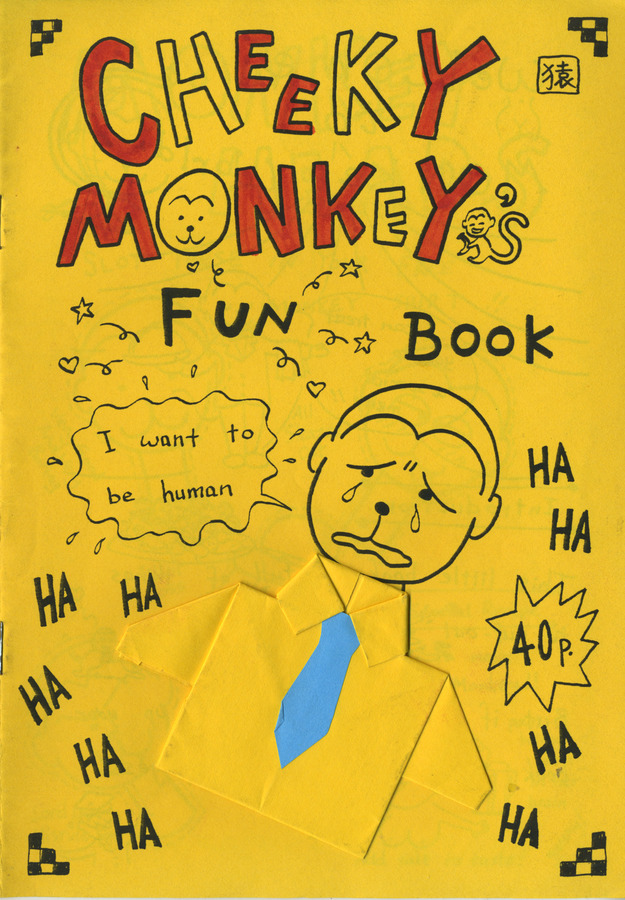 CHEEKY
猿
MONKEY'S
FUN BOOK
I want to
be human
HA
HA
HA HA
40p.
HA
HA
HA
HA
HA